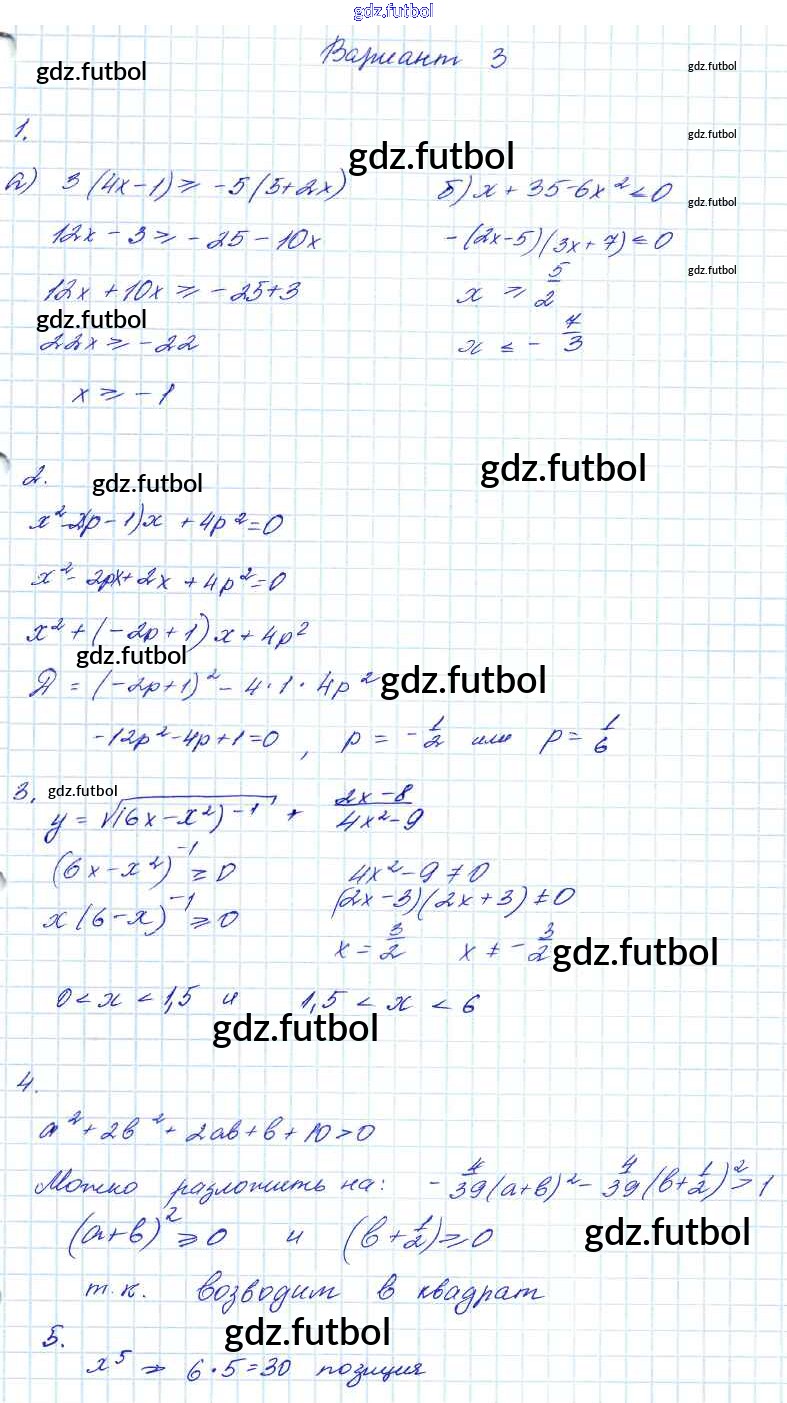 gdz.futbol
Вариант 3
gdz.futbol gdz.futbol
1. gdz.futbol
gdz.futbol
а) 3(4x-1) ≥ -5(5+2x) б) x + 35-6x² < 0 gdz.futbol
12x - 3 ≥ -25 - 10x -(2x-5)(3x+7) ≤ 0
12x + 10x ≥ -25+3 x ≥ 5/2 gdz.futbol
gdz.futbol
22x ≥ -22 x ≤ - 7/3
x ≥ -1
gdz.futbol
2. gdz.futbol
x²-2(p-1)x + 4p²=0
x²- 2px+2x + 4p²=0
x²+(-2p+1)x+4p²
gdz.futbol
Д = (-2p+1)²-4·1·4p² gdz.futbol
-12p²-4p+1=0, p = -1/2 или p = 1/6
3. gdz.futbol
y = √(6x-x²)⁻¹ + (2x-8)/(4x²-9)
(6x-x²)⁻¹ ≥ 0 4x²-9≠0
x(6-x)⁻¹ ≥ 0 (2x-3)(2x+3)≠0
x = 3/2 x ≠ -3/2 gdz.futbol
0 < x < 1,5 и 1,5 < x < 6
gdz.futbol
4.
a²+2в²+2aв+в+10>0
Можно разложить на: -4/39(a+в)²-4/39(в+1/2)²>1
(a+в)²≥0 и (в+1/2)≥0 gdz.futbol
т.к. возводим в квадрат
5. gdz.futbol
x⁵ ⇒ 6·5=30 позиция